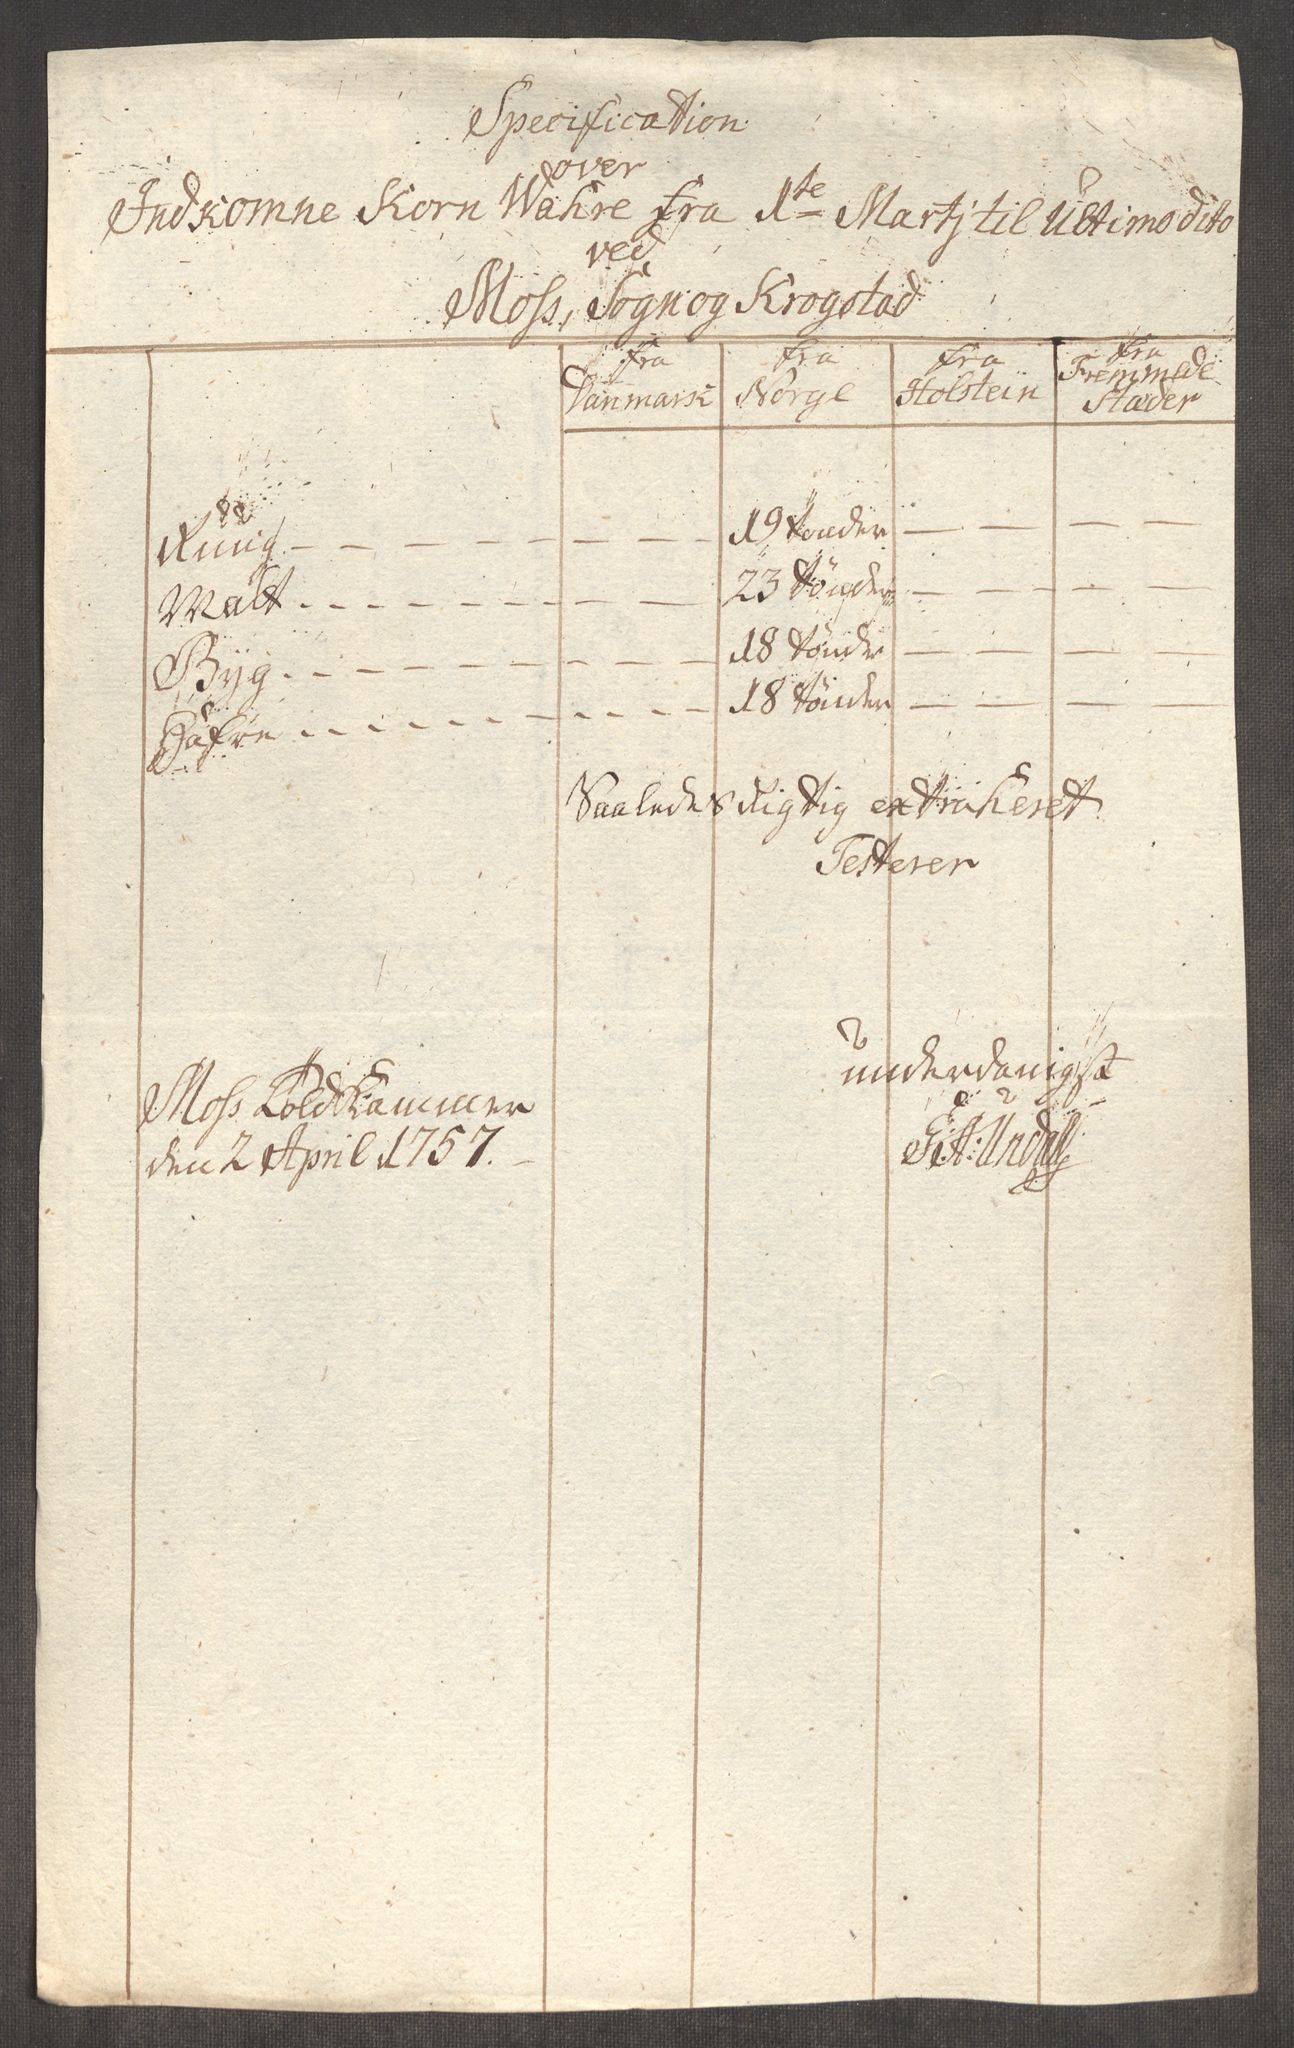 Specification
over
Indkomne Korn Wahre fra 1te Martj til Ultimo dito
ved
Moss, Sogn og Krogstad
fra Danmark fra Norge fra Holstein fra Fremmede Stæder
Ruug - - - - - - - - 19 tønder - - - -
Malt - - - - - - - - 23 Tønder - - - -
Byg - - - - - - - - 18 tønder - - - -
Hafre - - - - - - - - 18 tønder - - - -
Saaledes Rigtig extraheret
Testerer
underdanigst
Moss Toldkammer
den 2 April 1757.
Undall